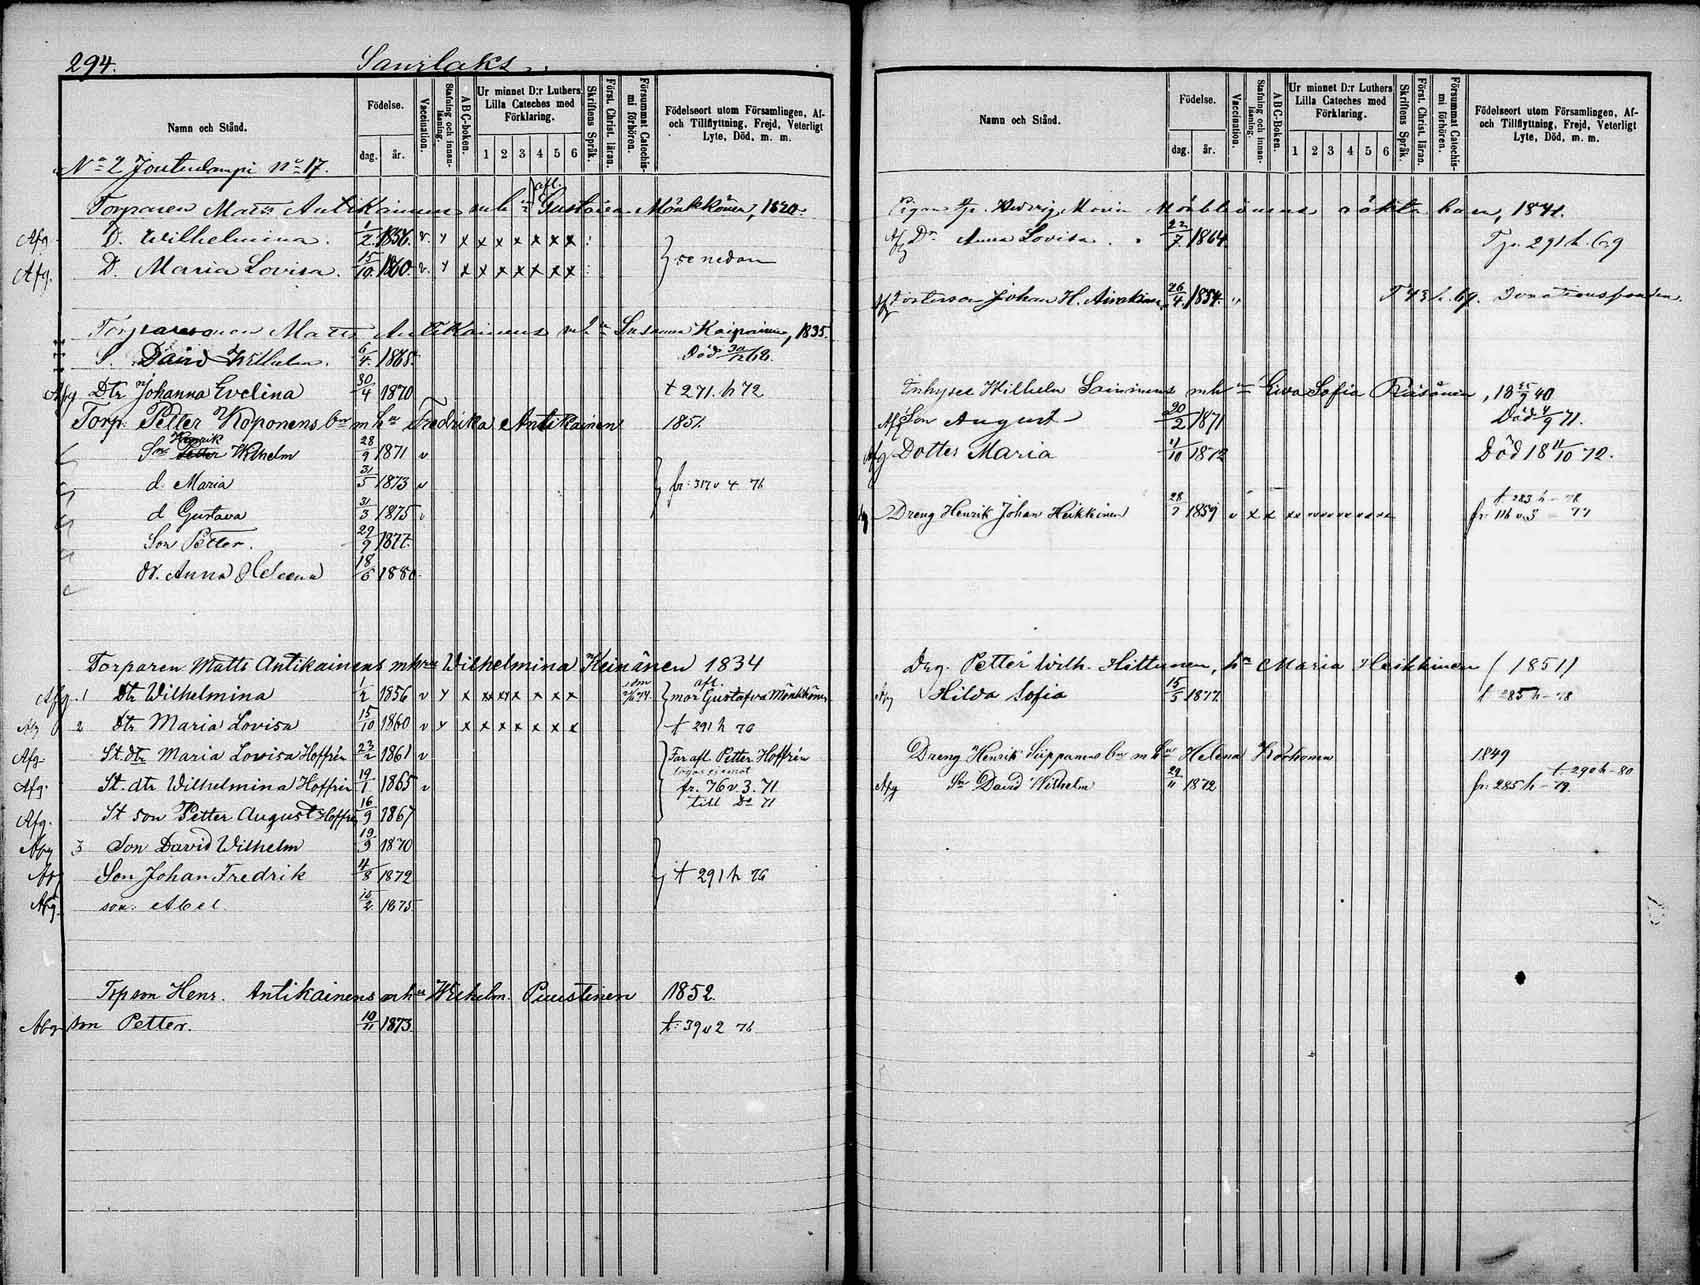 294. Saurlaks.
Namn och Stånd.
Födelse.
dag. år.
Vaccination.
Stafning och innanläsning.
ABC-boken.
Ur minnet D:r Luthers Lilla Cateches med Förklaring.
1 2 3 4 5 6
Skriftens Språk.
Först. Christ. läran.
Försummat Catechismi förhören.
Födelseort utom Församlingen, Af- och Tillflyttning, Frejd, Veterligt Lyte, Död, m. m.
No 2 Joutenlampi No 17.
afl.
Torparen Matts Antikainens mh:u Gustava Mönkkönen, 1820.
Afg. D. Wilhelmina. 1/2 1856. v. y x x x x x x x
Afg. D. Maria Lovisa. 15/10 1860. v. y x x x x x x x } se nedan
Matts Antikainens Susanna Kaipainen, 1835.
S. David Wilhelm. 6/4. 1865. Död 30/12 68.
Afg Dtr Johanna Evelina 30/4 1870 t 271. h 72
Torp. Petter Koponens bor m hu Fredrika Antikainen 1851.
Son Petter Henrik Wilhelm 28/9 1871 v
d. Maria 31/5 1873 v } fr: 317 v 4 76
d Gustava 31/3 1875 v
Son Petter. 29/9 1877.
dr. Anna Helena 18/6 1880.
Torparen Matts Antikainens mhru Wilhelmina Keinänen 1834
Afg. 1 Dtr Wilhelmina 1/2 1856 v y x x x x x x x } afl. mor Gustafva Mönkkönen
Afg 2 Dtr Maria Lovisa 15/10 1860 v y x x x x x x x t 291 h 76
Afg. St. dtr Maria Lovisa Hoffrén 23/2 1861 v } Far afl. Petter Hoffrén
Afg. St. dtr Wilhelmina Hoffrén 19/1 1865 v fr. 76 v. 3. 71
till Do 71
Afg. St son Petter August Hoffrén 16/9 1867
Afg 3 Son David Wilhelm 19/9 1870
Afg Son Johan Fredrik 4/8 1872 } t 291 h 76
Afg. son: Abel 15/2 1875
Trpson Henr. Antikainens mhu Wilhelm. Puustinen 1852.
Afg son Petter. 19/11 1873. t: 39 v 2 76
Namn och Stånd.
Födelse.
dag. år.
Vaccination.
Stafning och innanläsning.
ABC-Boken.
Ur minnet D:r Luthers Lilla Cateches med Förklaring.
1 2 3 4 5 6
Skriftens Språk.
Först. Christ. läran.
Försummat Catechismi förhören.
Födelseort utom Församlingen, Af- och Tillflyttning, Frejd, Veterligt Lyte, Död, m. m.
Pigan Hedvig Maria oäkta barn, 1841.
Afg Dr Anna Lovisa 22/7. 1864. T fr. 291 h. 69
Johan H. 26/4. 1854. T 43 h. 69.
Inhyses Wilhelm mhu Eiva Sofia Räsänen, 18 25/9 40
Afg Son August 20/2 1871 Död 4/9 71.
Afg Dotter Maria 11/10 1872 Död 18 11/10 72.
t 283 h – 78
Dreng Henrik Johan Heikkinen 28/7 1859 v x x fr: 116 v. 3 – 77
Drg. Petter Wilh. Hiltunen, hu Maria Heikkinen (1851)
Afg Hilda Sofia 15/5 1877. t 285 h – 78
Dreng Henrik Seppänens bor m hu Helena Korhonen 1849
t 290 h – 80
Afg Sn David Wilhelm 29/11 1872 fr: 285 h – 79.